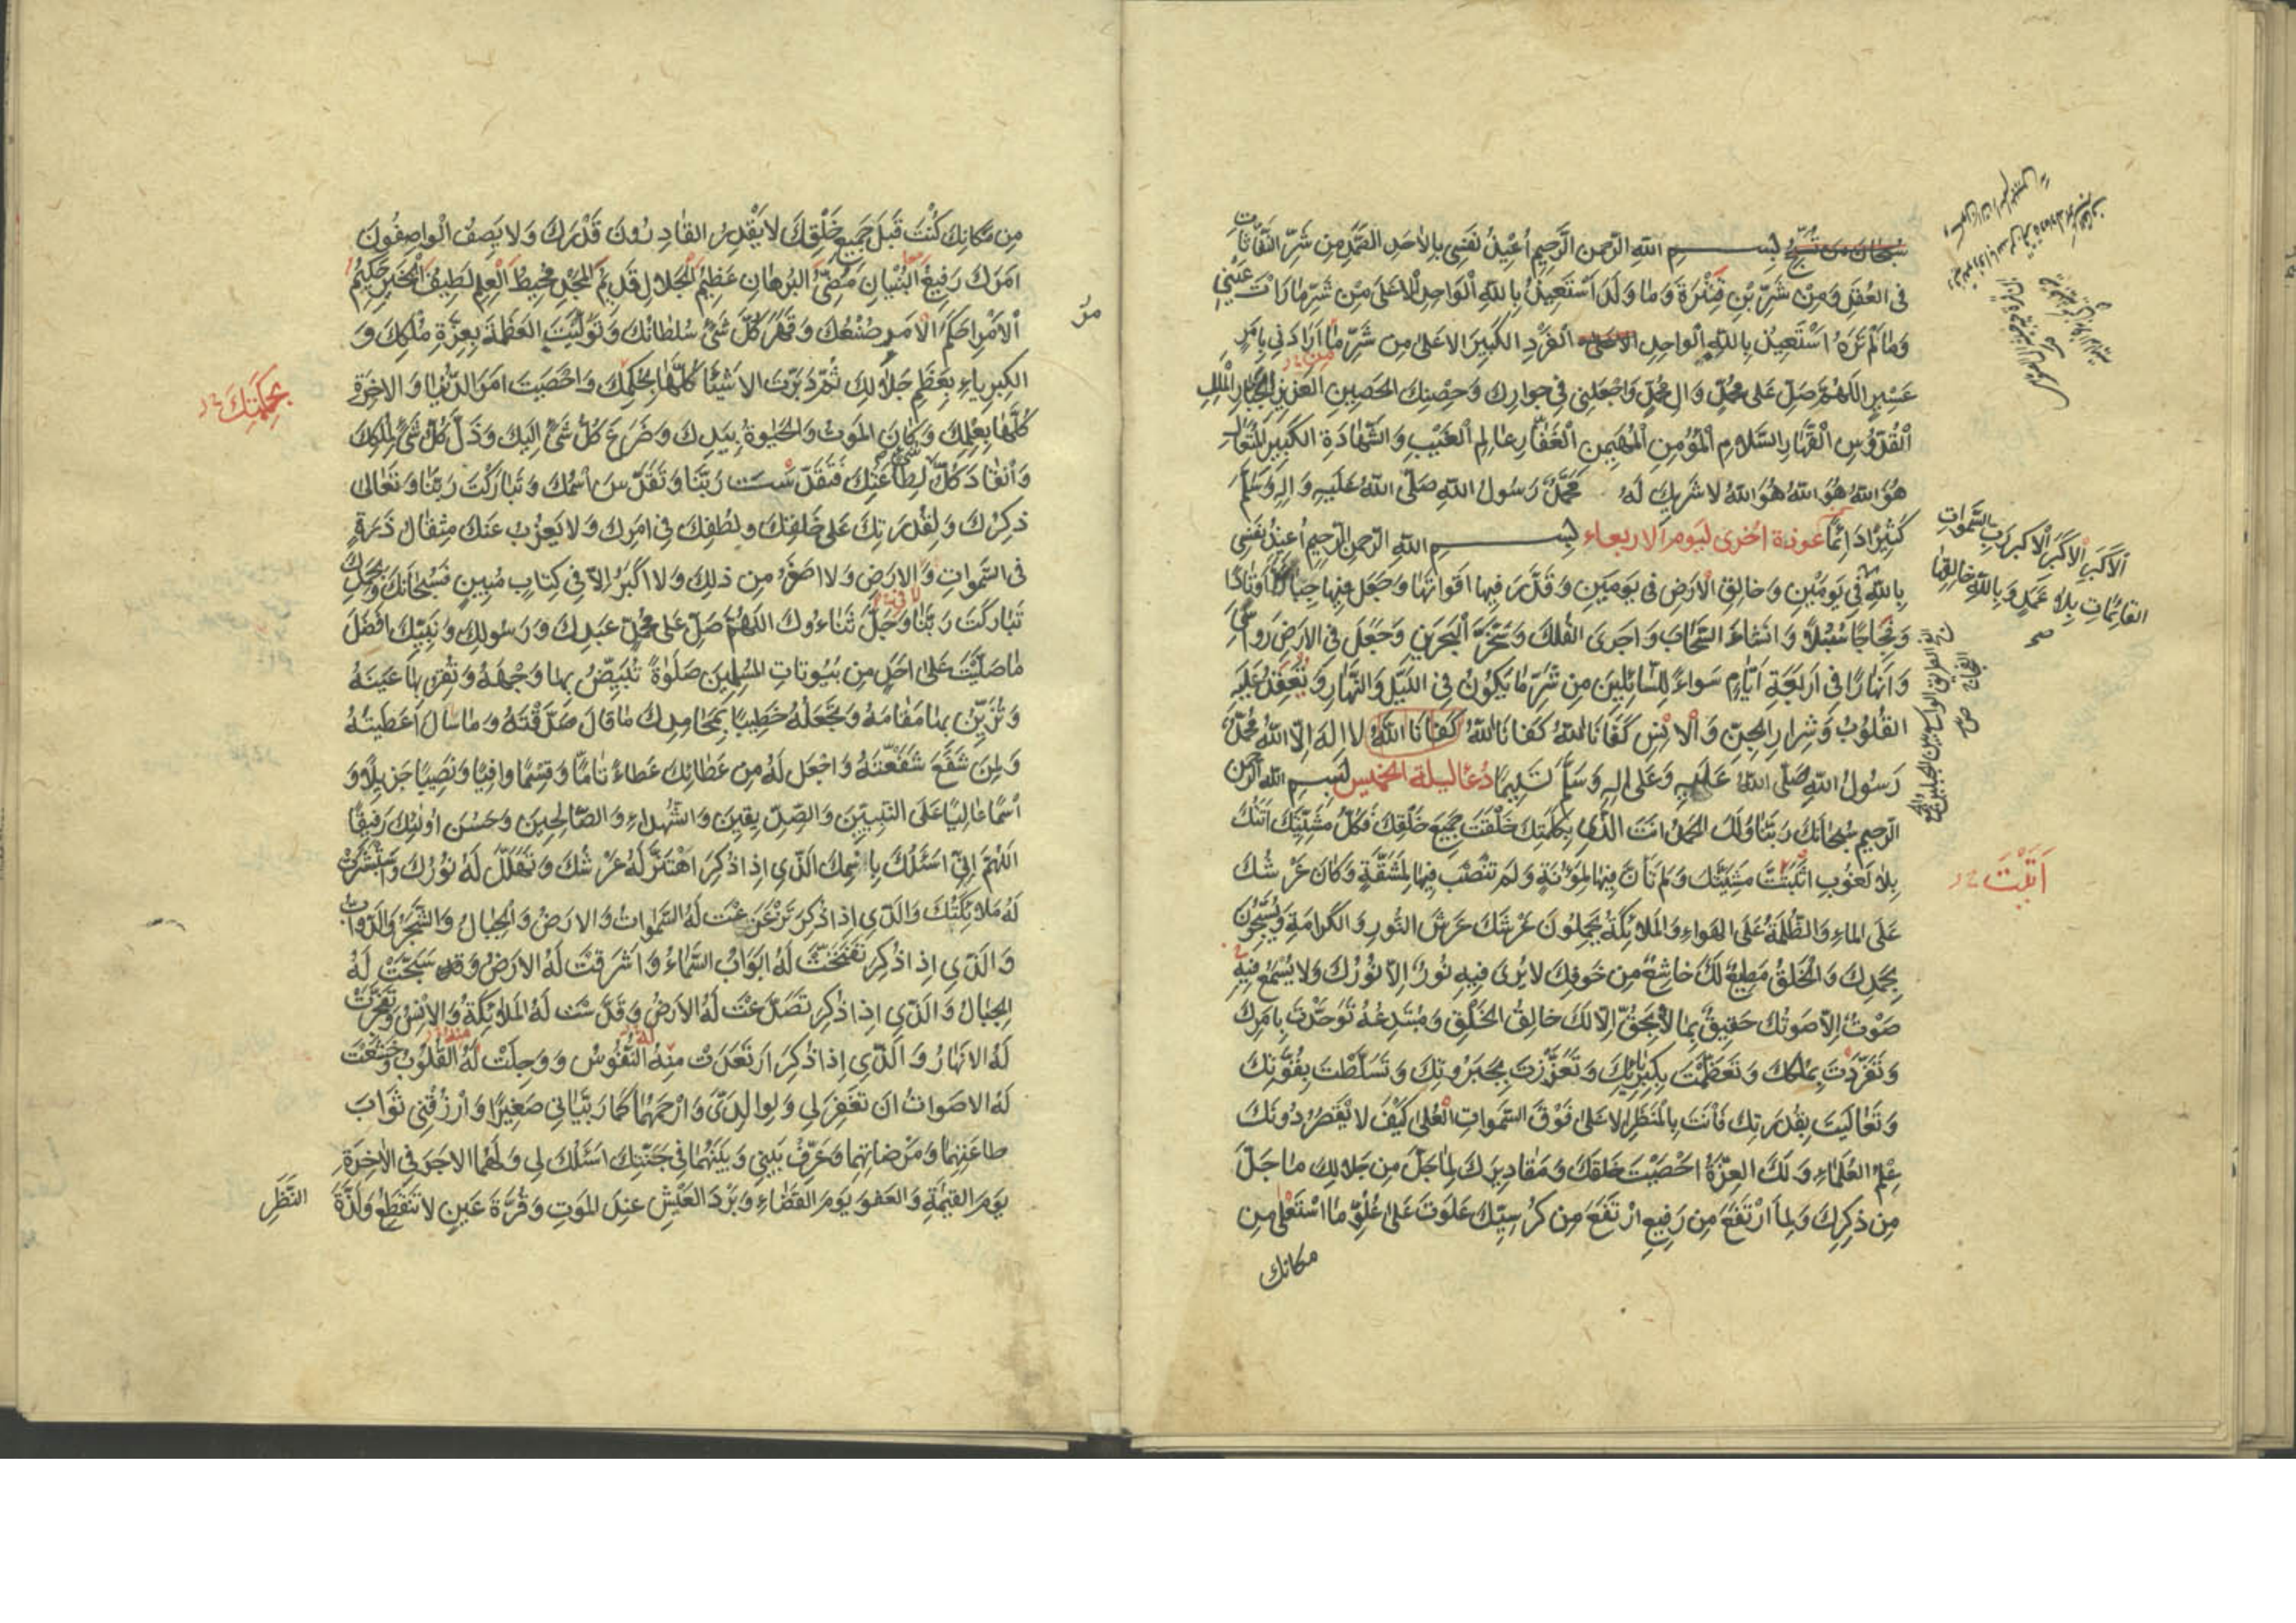 بسم الله الرحمن الرحيم اعيذ نفسي بالاحد الصمد من شر النفاثات
في العقد ومن شر بن قترة وما ولد استعيذ بالله الواحد الاعلى من شر ما رات عيني
وما لم تره استعيذ بالله الواحد الفرد الكبير الاعلى من شر ما ارادني بامر
عسير اللهم صل على محمد وال محمد واجعلني في جوارك وحصنك الحصين العزيز الجبار الملك
القدوس القهار السلام المؤمن المهيمن الغفار عالم الغيب والشهادة الكبير المتعال
هو الله هو الله هو الله لا شريك له محمد رسول الله صلى الله عليه واله وسلم
كثيرا دائما عوذة اخرى ليوم الاربعاء بسم الله الرحمن الرحيم اعيذ نفسي
بالله في يومين وخالق الارض في يومين وقدر فيها اقواتها وجعل فيها جبالا اوتادا
وفجاجا سبلا وانشاء السحاب واجرى الفلك وسخر البحرين وجعل في الارض رواسي
وانهارا في اربعة ايام سواء للسائلين من شر ما يكون في الليل والنهار وتعقد عليه
القلوب وشرار الجن والانس كفانا الله كفانا الله كفانا الله لا اله الا الله محمد
رسول الله صلى الله عليه وعلى اله وسلم تسليما دعا ليلة الخميس بسم الله الرحمن
الرحيم سبحانك ربنا ولك الحمد انت الذي بكلمتك خلقت جميع خلقك فكل مشيتك اتتك
بلا لغوب اثبتت مشيتك ولم تان فيها لمؤنة ولم تنصب فيها لمشقة وكان عرشك
على الماء والظلمة على الهواء والملائكة يحملون عرشك عرش النور والكرامة ويسبحون
بحمدك والخلق مطيع لك خاشع من خوفك لا يرى فيه نور الا نورك ولا يسمع فيه
صوت الا صوتك حقيق بما لا يحق الا لك خالق الخلق ومبتدعه توحدت بامرك
وتفردت بملكك وتعظمت بكبريائك وتعززت بجبروتك وتسلطت بقوتك
وتعاليت بقدرتك فانت بالمنظر الاعلى فوق السموات العلى كيف لا يقصر دونك
علم العلماء ولك العزة احصيت خلقك ومقاديرك لما جل من جلالك ما جل
من ذكرك ولما ارتفع من رفيع ارتفع من كرسيك علوت على علو ما استعلى من
مكانك
الاكبر الاكبر الاكبر رب السموات
القائمات بلا عمد وبالله خالقها
صح
اتيت
من مكانك كنت قبل جميع خلقك لا يقدر القادرون قدرك ولا يصف الواصفون
امرك رفيع البنيان مضئ البرهان عظيم الجلال قديم المجد محيط العلم لطيف الخبر حكيم
الامر احكم الامر صنعك وقهر كل شئ سلطانك وتوليت العظمة بعزة ملكك و
الكبرياء بعظم جلالك ثم دبرت الاشيا كلها بحكمك واحصيت امر الدنيا والاخرة
كلها بعلمك وكان الموت والحيوة بيدك وضرع كل شئ اليك وذل كل شئ لملكك
وانقاد كل لطاعتك فتقدست ربنا وتقدس اسمك وتباركت ربنا وتعالى
ذكرك ولقدرتك على خلقك ولطفك في امرك ولا يعزب عنك مثقال ذرة
في السموات والارض ولا اصغر من ذلك ولا اكبر الا في كتاب مبين فسبحانك وبحمدك
تباركت ربنا وجل ثناءوك اللهم صل على محمد عبدك ورسولك ونبيك افضل
ما صليت على احد من بيوتات المسلمين صلوة تبيض بها وجهه وتقر بها عينه
وتزين بها مقامه وتجعله خطيبا بمحامدك ما قال صدقته وما سال اعطيته
ولمن شفع شفعته واجعل له من عطائك عطاء تاما وقسما وافيا ونصيبا جزيلا و
اسما عاليا على النبيين والصديقين والشهداء والصالحين وحسن اولئك رفيقا
اللهم اني اسئلك باسمك الذي اذا ذكر اهتز له عرشك وتهلل له نورك واستبشرت
له ملائكتك والذي اذا ذكر تزعزعت له السموات والارض والجبال والشجر والدواب
والذي اذا ذكر تفتحت له ابواب السماء واشرقت له الارض وقد سبحت له
الجبال والذي اذا ذكر تصدعت له الارض وقدست له الملائكة والانس وتفجرت
له الانهار والذي اذا ذكر ارتعدت منه النفوس ووجلت له القلوب وخشعت
له الاصوات ان تغفر لي ولوالدي وارحمهما كما ربياني صغيرا وارزقني ثواب
طاعتهما ومرضاتهما وعرف بيني وبينهما في جنتك اسئلك لي ولهما الاجر في الاخرة
يوم القيمة والعفو يوم القضاء وبرد العيش عند الموت وقرة عين لا تنقطع ولذة
النظر
بحكمتك